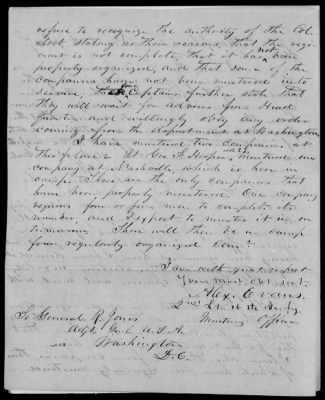 refuse to recognize the authority of the Col.
stating as their reasons, that the regi-
ment is not complete that it has not been
properly organized and that some of the
companies have not been mustered into
service, The Captains further state that
they will wait for advices from Head
Quarters and willingly obey any order
coming from the department at Washington
I have mustered two companies at
this place & Lt. Geo. F. mustered one
company at Nashville, which is here in
camp. These are the only companies that
have been properly mustered. One company
requires four or five men to complete its
number, and I expect to muster it in on
tomorrow. There will then be in camp
four regularly organized Com's.
I am with great respect
Your most obt. svt.
Alex. Evans.
2nd Lt. Infy
Mustering Officer
To General R. Jones
Adjt. Genl. U.S.A.
Washington
D.C.